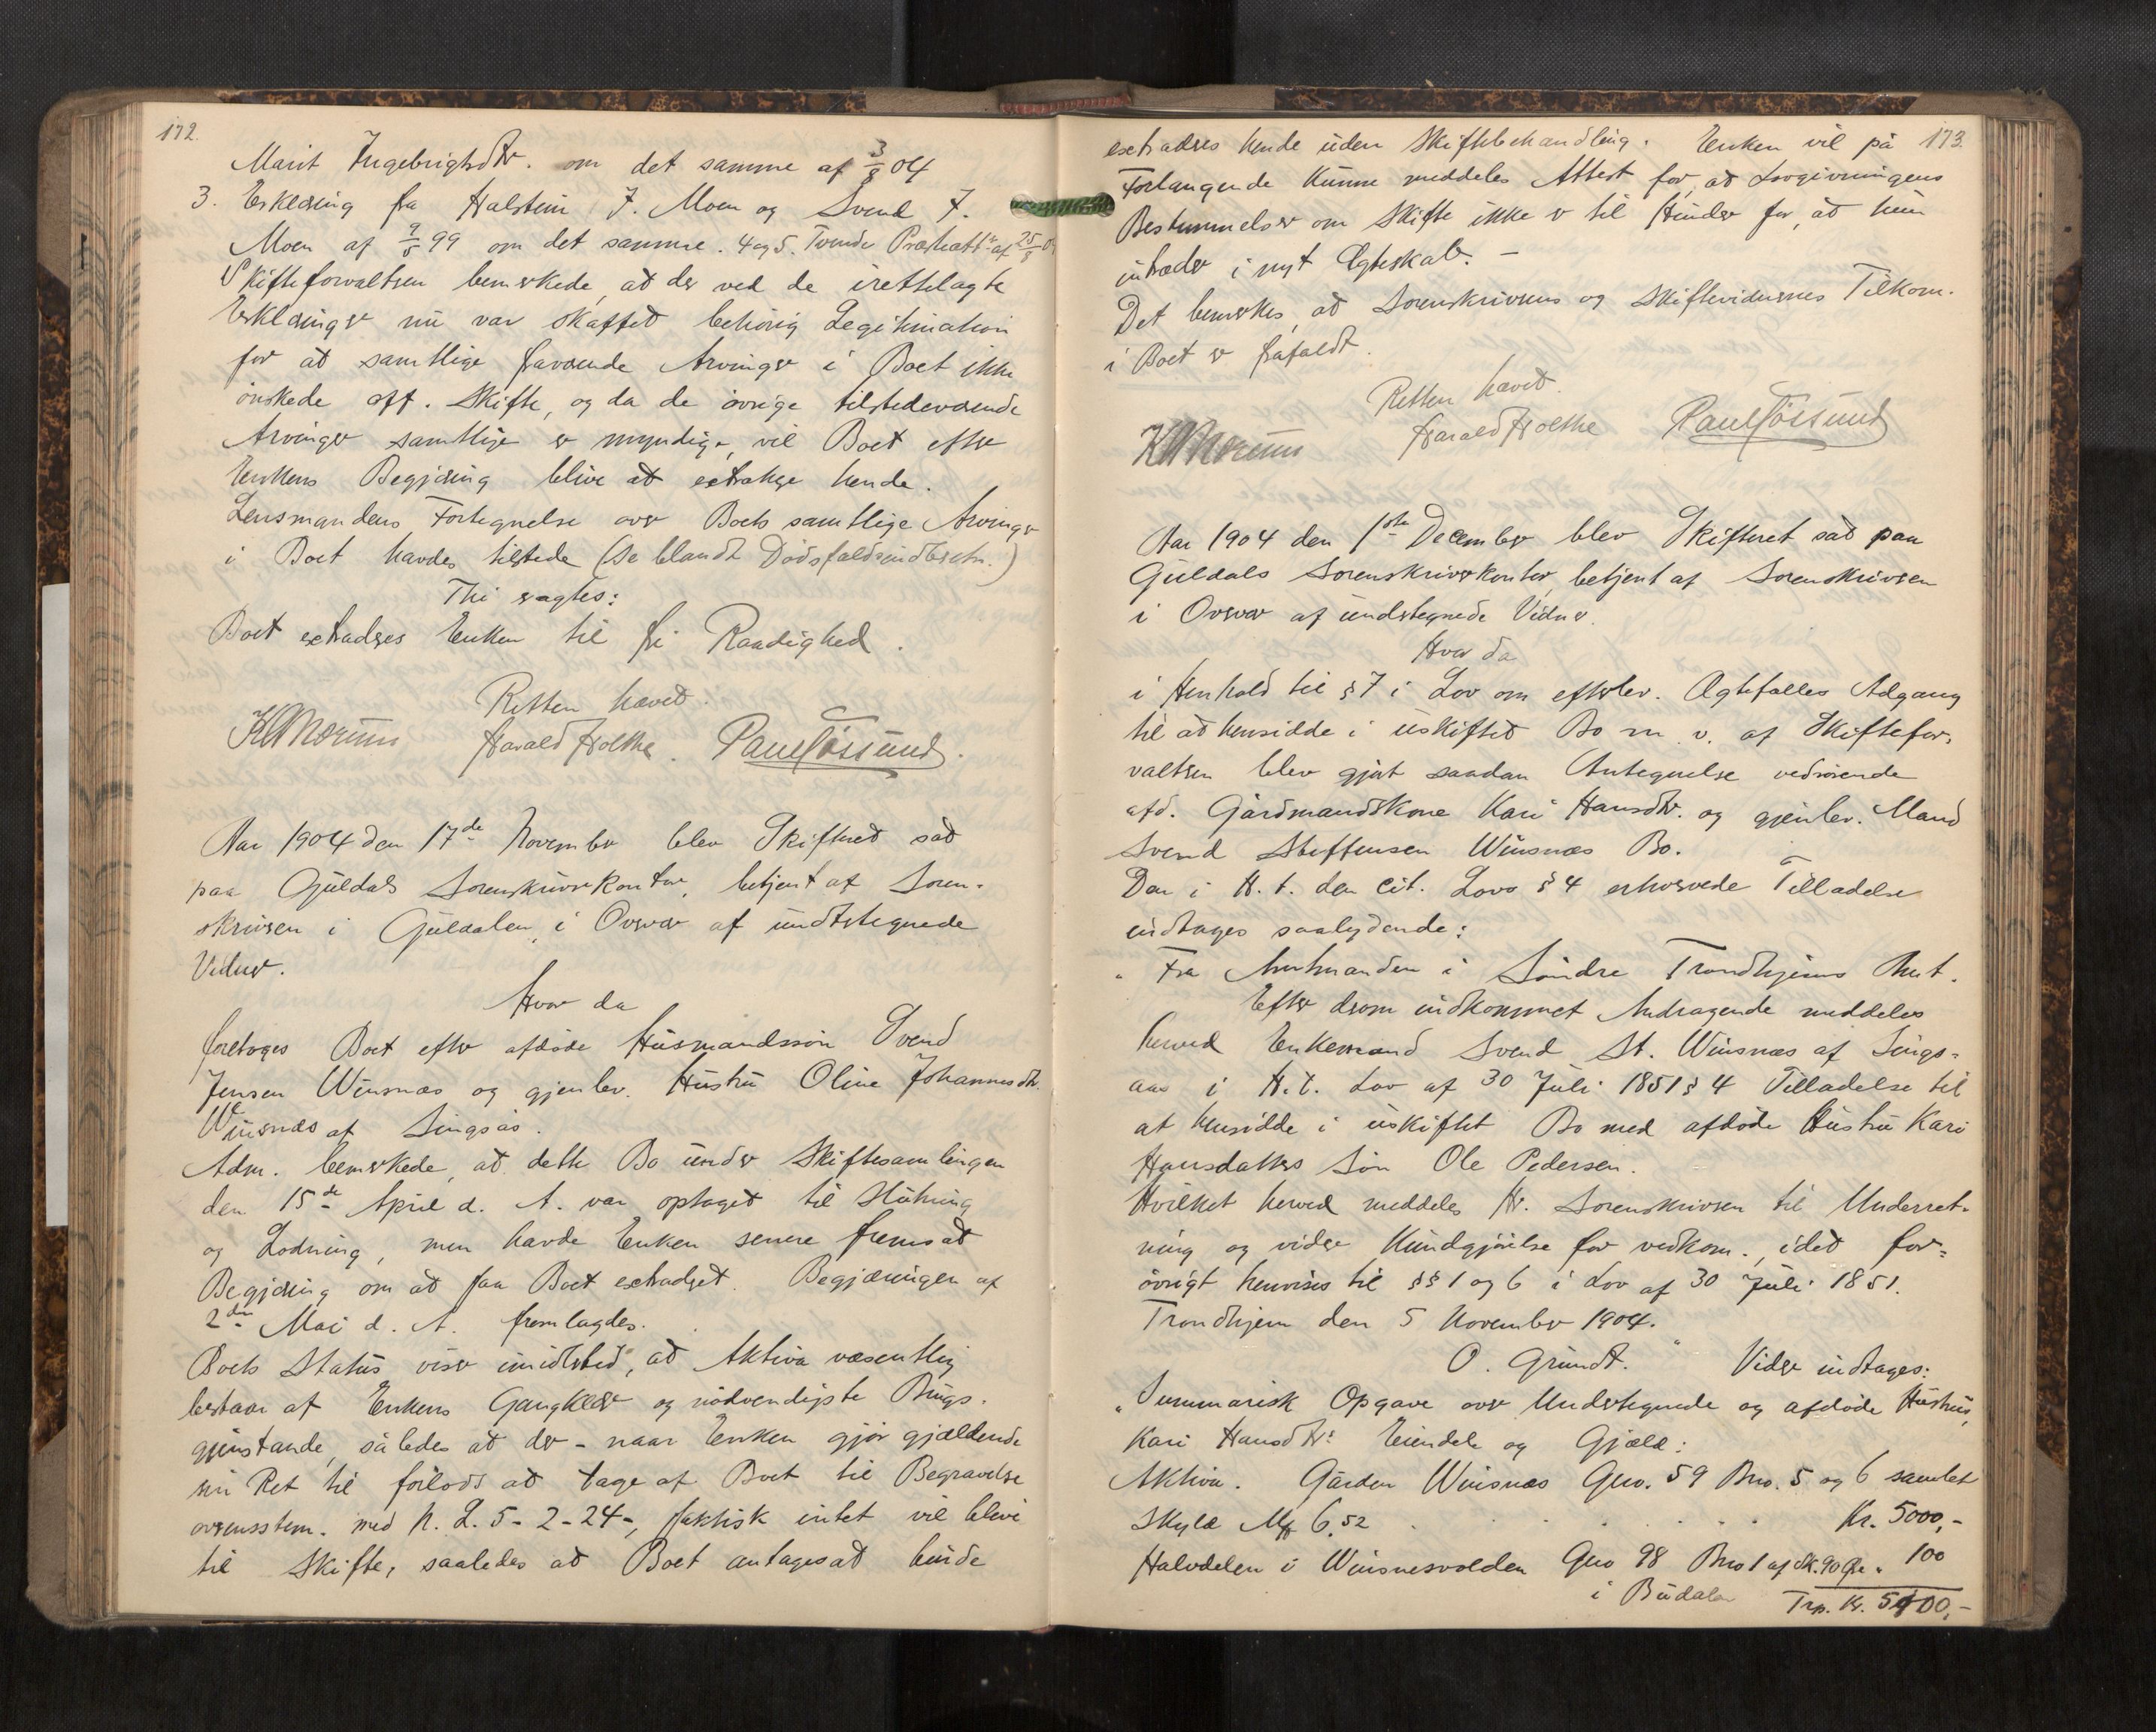 172.
Marit Ingebrigtsdtr. om det samme af 3/8 04
3. Erklæring fra Halstein J. Moen og Svend J.
Moen af 9/5 99 om det samme. 4 og 5. Tvende Præsteatt. af 25/8 0
Skifteforvalteren bemerkede, at der ved de irettelagte
Erklæringer nu var skaffet behørig Legitimation
for at samtlige fraværende Arvinger i Boet ikke
ønskede off. Skifte, og da de øvrige tilstedeværende
Arvinger samtlige er myndige, vil Boet efter
Enkens Begjæring blive at extradere hende.
Lensmandens Fortegnelse over Boets samtlige Arvinger
i Boet havdes tilstede (Se blandt Dødsfaldsindberetn.)
Thi eragtes:
Boet extraderes Enken til fri Raadighed.
Retten hævet.
Harald Holthe. Paul Fossund.
Aar 1904 den 17de November blev Skifteret sat
paa Guldals Sorenskriverkontor, betjent af Soren-
skriveren i Guldalen, i Overvær af undertegnede
Vidner.
Hvor da
foretoges Boet efter afdøde Husmandssøn Svend
Jensen Winsnæs og gjenlev. Hustru Oline Johannesdtr.
Winsnæs af Singsås.
Adm. bemerkede, at dette Bo under Skiftesamlingen
den 15de April d. A. var optaget til Slutning
og Lodning, men havde Enken senere fremsat
Begjæring om at faa Boet extraderet. Begjæringen af
2den Mai d. A. fremlagdes.
Boets Status viser imidlertid, at Aktiva væsentlig
bestaar af Enkens Gangklær og nødvendigste Brugs-
gjenstande, således at der - naar Enken gjør gjældende
sin Ret til forlods at tage af Boet til Begravelse
overensstem. med N. L. 5-2-24-, faktisk intet vil blive
til Skifte, saaledes at Boet antages at burde
173.
extraderes hende uden Skiftebehandling. Enken vil på
Forlangende kunne meddeles Attest for, at Lovgivningens
Bestemmelser om Skifte ikke er til Hinder for, at hun
intræder i nyt Ægteskab. -
Det bemerkes, at Sorenskriverens og Skiftevidnernes Tilkom.
i Boet er frafaldt.
Retten hævet.
Harald Holthe Paul Fossund
Aar 1904 den 1ste December blev Skifteret sat paa
Guldals Sorenskriverkontor, betjent af Sorenskriveren
i Overvær af undertegnede Vidner.
Hvor da
i Henhold til § 7 i Lov om efterlev. Ægtefælles Adgang
til at hensidde i uskiftet Bo m. v. af Skiftefor-
valteren blev gjort saadan Antegnelse vedrørende
afd. Gårdmandskone Kari Hansdtr. og gjenlev. Mand
Svend Steffensen Winsnæs Bo.
Den i H. t. den cit. Lovs § 4 erhvervede Tilladelse
indtages saalydende:
"Fra Amtmanden i Søndre Trondhjems Amt.
Efter derom indkommet Andragende meddeles
herved Enkemand Svend St. Winsnæs af Sings-
aas i H. t. Lov af 30 Juli 1851 § 4 Tilladelse til
at hensidde i uskiftet Bo med afdøde Hustru Kari
Hansdatters Søn Ole Pedersen.
Hvilket herved meddeles Hr. Sorenskriveren til Underret-
ning og videre Kundgjørelse for vedkom., idet for-
øvrigt henvises til §§ 1 og 6 i Lov af 30 Juli 1851.
Trondhjem den 5 November 1904.
O. Grundt." Videre indtages:
"Summarisk Opgave over Undertegnede og afdøde Hustru,
Kari Hansdtrs Eiendele og Gjæld:
Aktiva. Gården Winsnæs Gno. 59 Bno. 5 og 6 samlet
Skyld Mk 6,52 . . . . . . Kr. 5000,-
Halvdelen i Winsnesvolden Gno 98 Bno 1 af Sk. 90 Øre " 100
i Budalen Trp. Kr. 5100,-